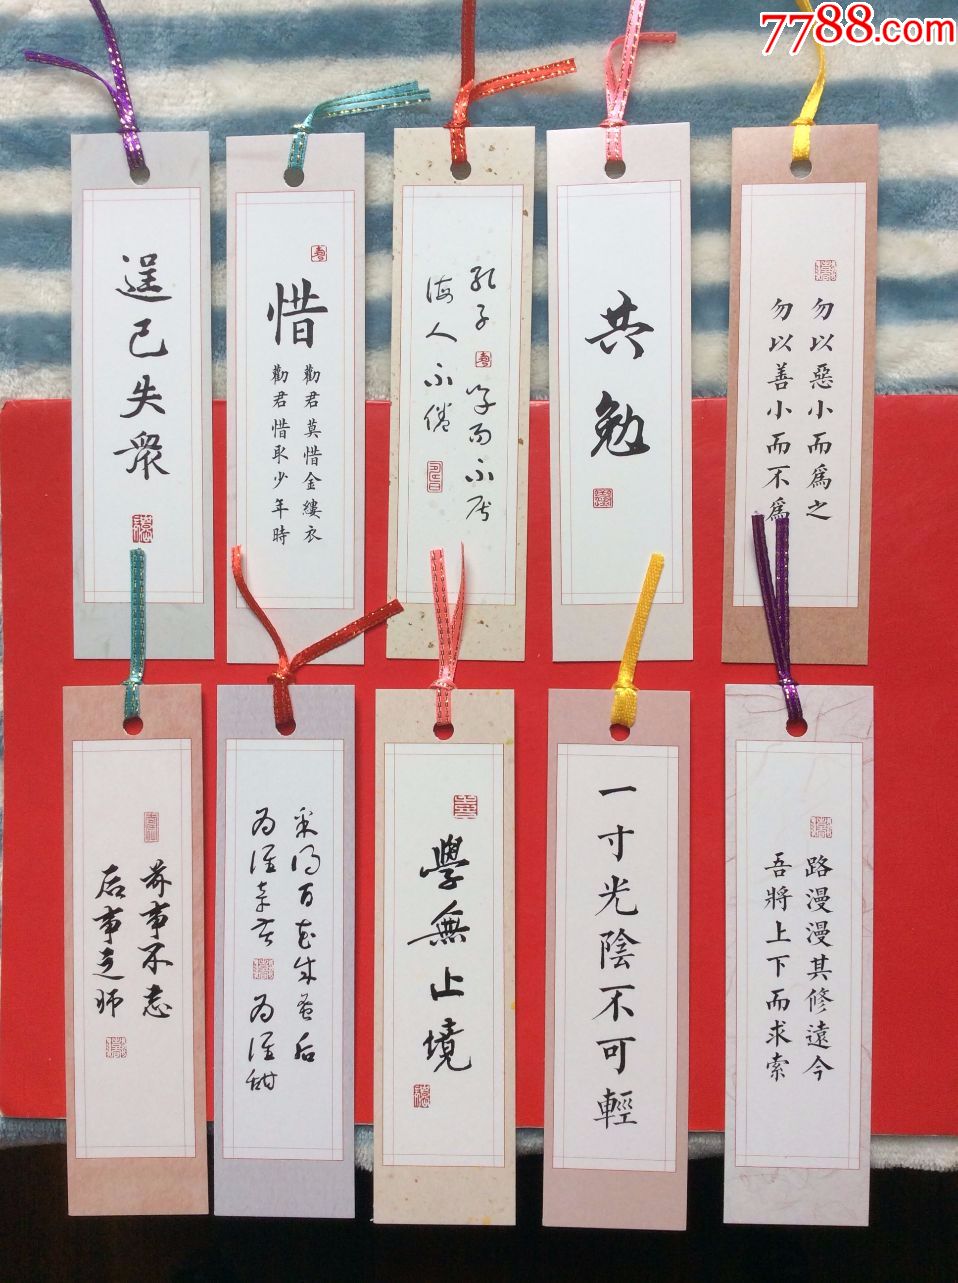 7788.com
逞己失眾
惜
勸君莫惜金縷衣
勸君惜取少年時
孔子
学而不厌
诲人不倦
共勉
勿以惡小而為之
勿以善小而不為
前事不忘
后事之师
采得百花成蜜后
为谁辛苦
为谁甜
學無止境
一寸光陰不可輕
路漫漫其修遠今
吾將上下而求索